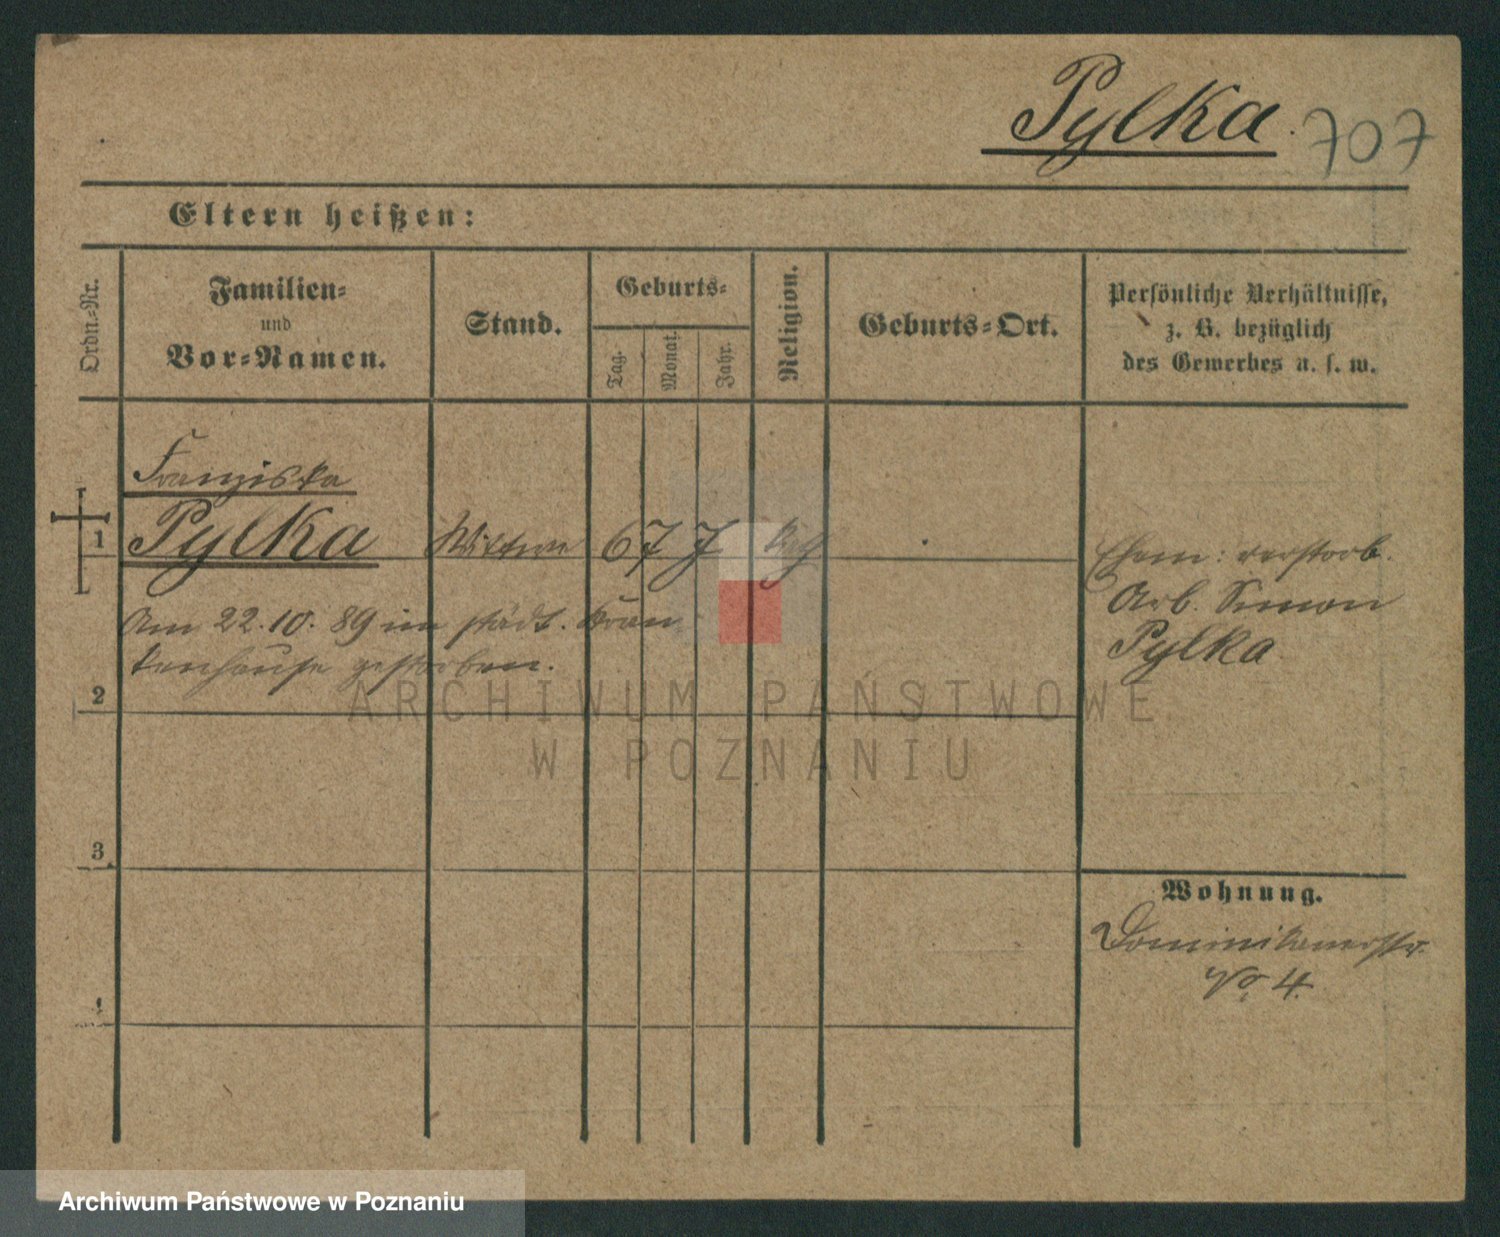 Pylka. 707
Eltern heißen:
Ordn.-Nr.
Familien-
und
Vor-Namen.
Stand.
Geburts-
Tag.
Monat.
Jahr.
Religion.
Geburts-Ort.
Persönliche Verhältnisse,
z. B. bezüglich
des Gewerbes u. s. w.
Franziska
1 Pylka Wittwe 67 J kath
Am 22.10.89 im städt. Kran
kenhause gestorben.
Ehem: verstorb.
Arb. Simon
Pylka
2
3
4
Wohnung.
Dominikanerstr.
No 4.
ARCHIWUM PAŃSTWOWE
W POZNANIU
Archiwum Państwowe w Poznaniu